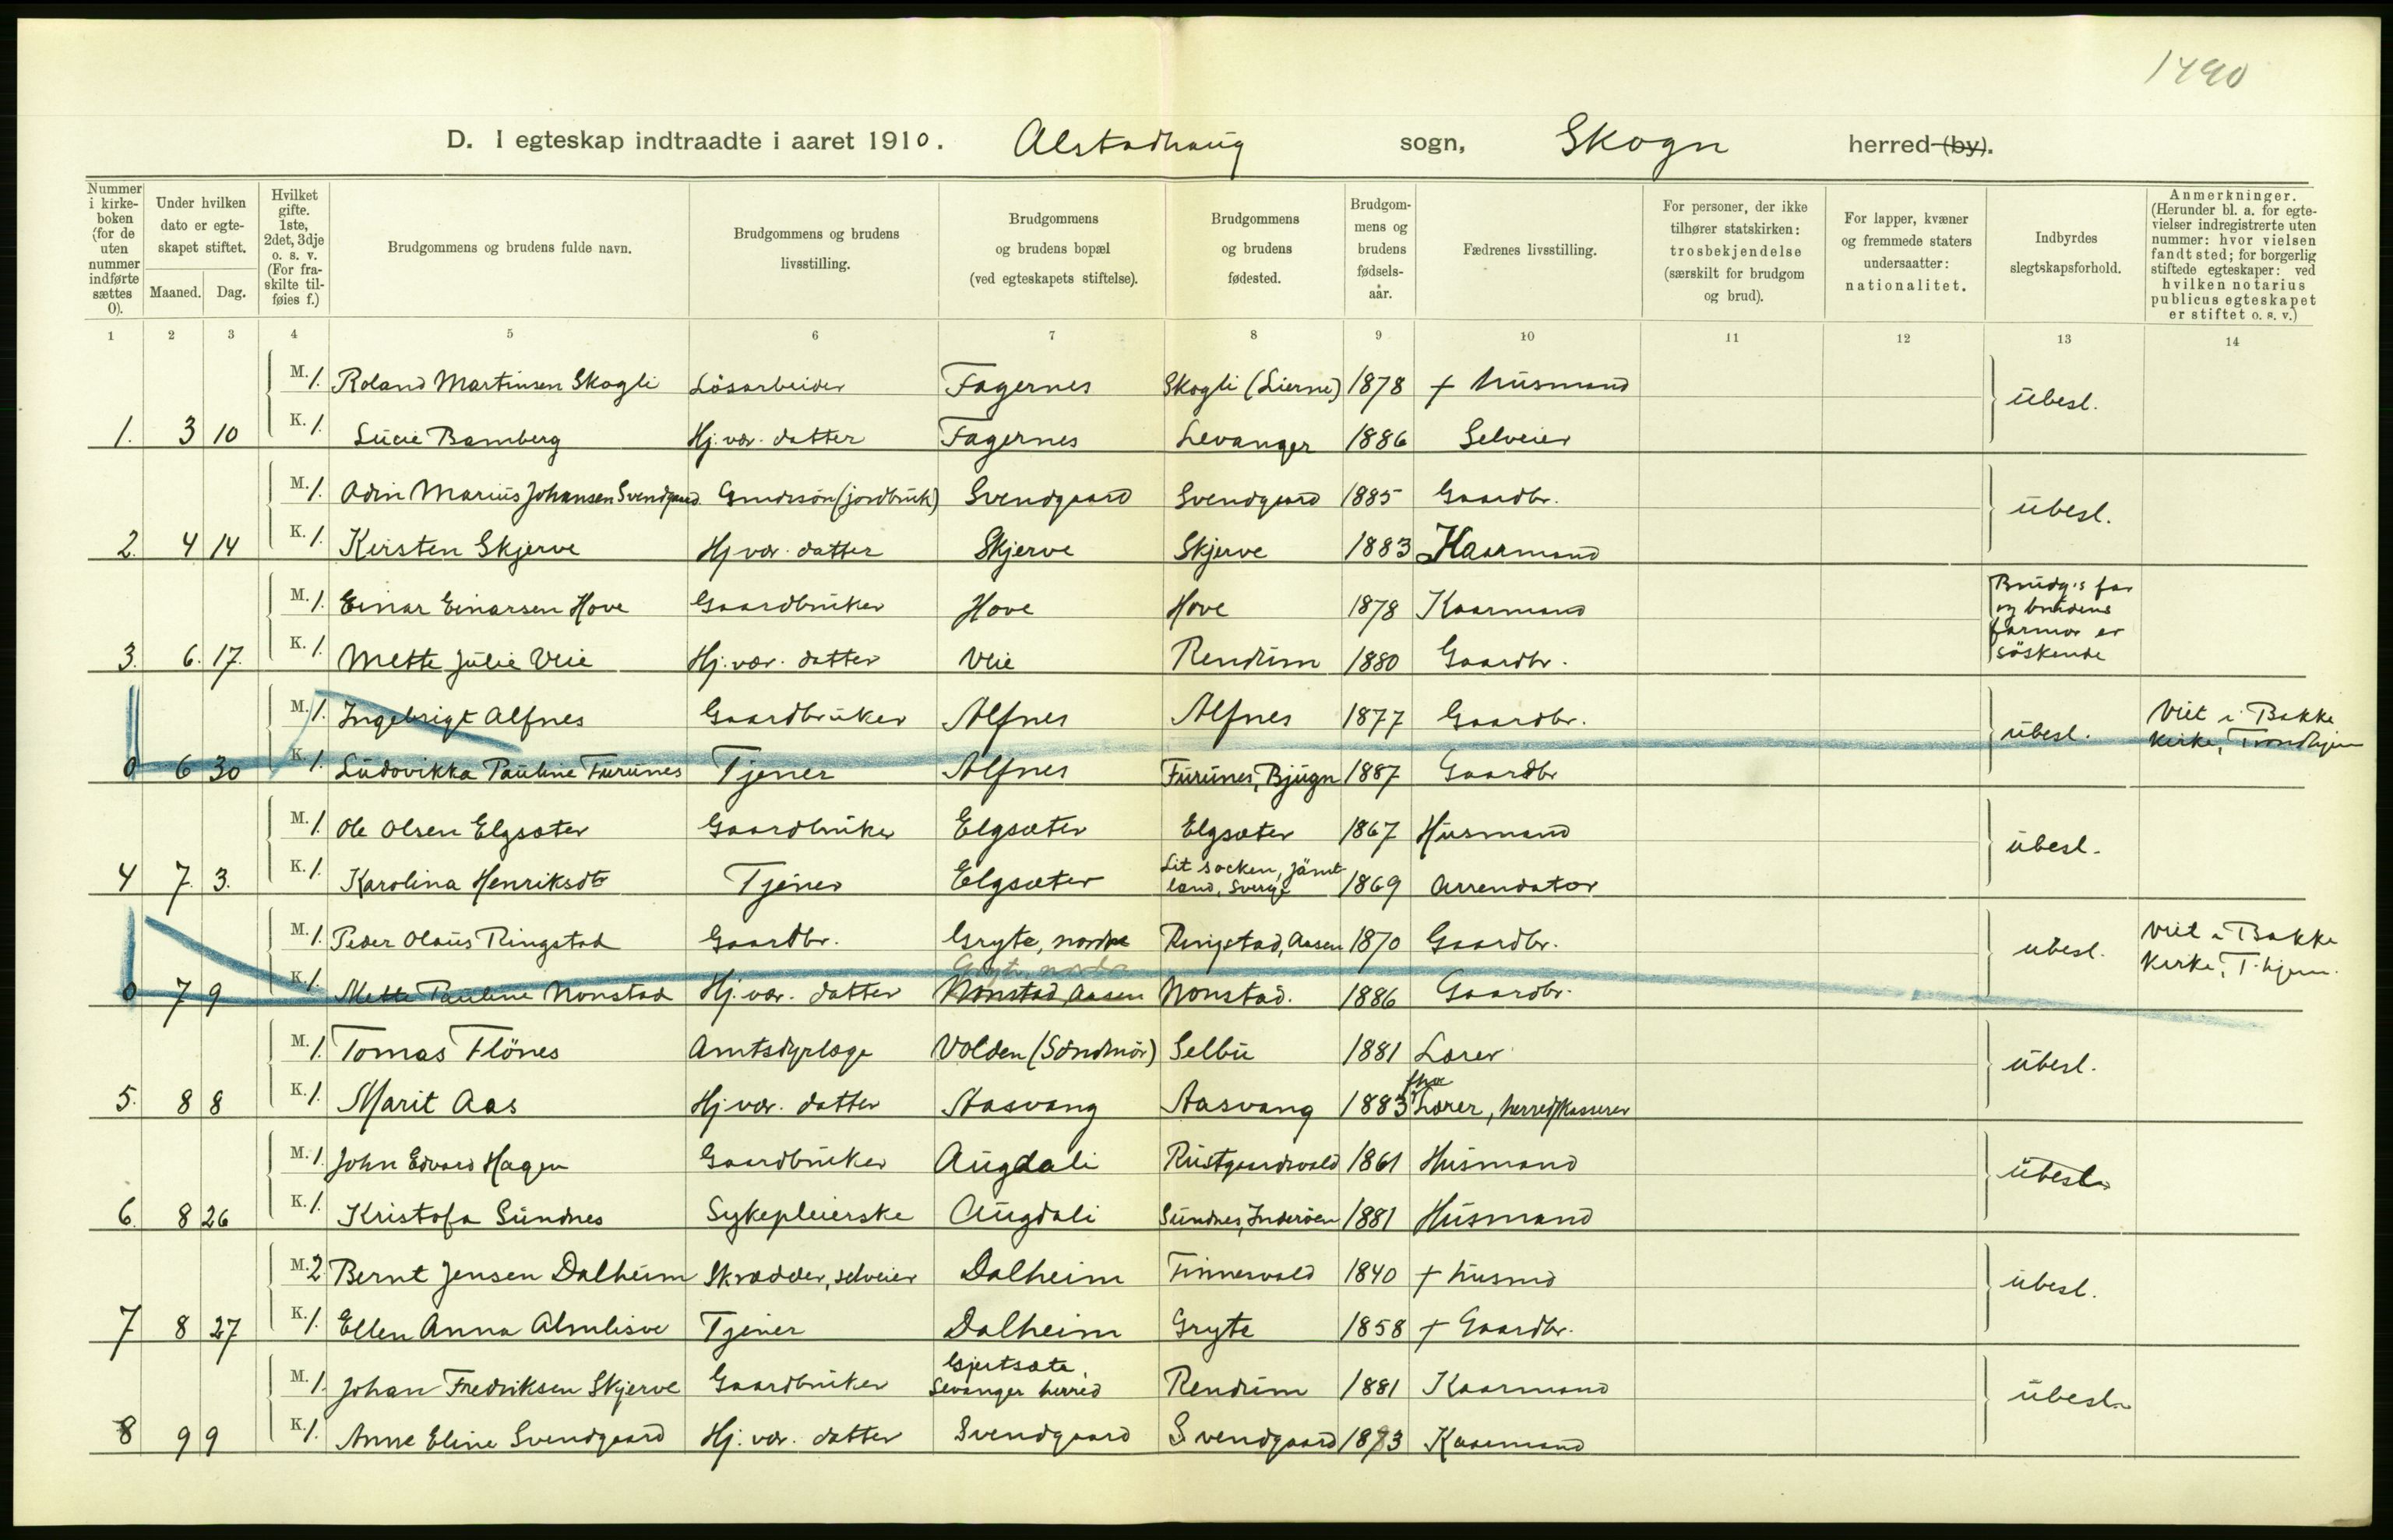 1490
D. I egteskap indtraadte i aaret 1910. Alstadhaug sogn, Skogn herred (by).
Nummer i kirkeboken (for de uten nummer indførte sættes 0).
Under hvilken dato er egteskapet stiftet. Maaned. Dag.
Hvilket gifte. 1ste, 2det, 3dje o. s. v. (For fraskilte tilføies f.)
Brudgommens og brudens fulde navn.
Brudgommens og brudens livsstilling.
Brudgommens og brudens bopæl (ved egteskapets stiftelse).
Brudgommens og brudens fødested.
Brudgommens og brudens fødselsaar.
Fædrenes livsstilling.
For personer, der ikke tilhører statskirken: trosbekjendelse (særskilt for brudgom og brud).
For lapper, kvæner og fremmede staters undersaatter: nationalitet.
Indbyrdes slegtskapsforhold.
Anmerkninger. (Herunder bl. a. for egtevielser indregistrerte uten nummer: hvor vielsen fandt sted; for borgerlig stiftede egteskaper: ved hvilken notarius publicus egteskapet er stiftet o. s. v.)
1 2 3 4 5 6 7 8 9 10 11 12 13 14
M. 1. Roland Martinsen Skogli Lösarbeider Fagernes Skogli (Lierne) 1878 + husmand ubesl.
1. 3 10 K. 1. Lucie Bamberg Hj. vær. datter Fagernes Levanger 1886 Selveier
M. 1. Odin Marius Johansen Svendgaard Gmdrsön (jordbruk) Svendgaard Svendgaard 1885 Gaardbr. ubesl.
2. 4 14 K. 1. Kirsten Skjerve Hj vær. datter Skjerve Skjerve 1883 Kaarmand
M. 1. Einar Einarsen Hove Gaardbruker Hove Hove 1878 Kaarmand Brudg's far og brudens farmor er söskende
3. 6. 17. K. 1. Mette Julie Veie Hj. vær. datter Veie Rendum 1880 Gaardbr.
M. 1. Ingebrigt Alfnes Gaardbruker Alfnes Alfnes 1877 Gaardbr. ubesl. Viet i Bakke kirke, Trondhjem
0 6 30 K. 1. Ludovikka Pauline Furunes Tjener Alfnes Furunes, Bjugn 1887 Gaardbr
M. 1. Ole Olsen Elgsæter Gaardbruker Elgsæter Elgsæter 1867 Husmand ubesl.
4 7. 3. K. 1. Karolina Henriksdtr Tjener Elgsæter Lit socken, Jämtland, Sverge 1869 Arrendator
M. 1. Peder Olaus Ringstad Gaardbr. Gryte, nordre Ringstad, Aasen 1870 Gaardbr. ubesl. Viet i Bakke kirke, T.hjem.
Gryte, nordre
0 7 9 K. 1. Mette Pauline Nonstad Hj. vær. datter Nonstad, Aasen Nonstad. 1886 Gaardbr.
M. 1. Tomas Flönes Amtsdyrlæge Volden (Söndmör) Selbu 1881 Lærer ubesl.
5. 8 8 K. 1. Marit Aas Hj vær. datter Aasvang Aasvang 1883 fhv Lærer, herredskasserer
M. 1. John Edvard Hagen Gaardbruker Augdali Rustgaardsvald 1861 Husmand ubesl.
6. 8 26 K. 1. Kristofa Sundnes Sykepleierske Augdali Sundnes, Inderöen 1881 Husmand
M. 2 Bernt Jensen Dalheim Skrædder, selveier Dalheim Finnesvald 1840 + husmd ubesl.
7 8 27 K. 1. Ellen Anna Almlisve Tjener Dalheim Gryte 1858 + Gaardbr.
M. 1. Johan Fredriksen Skjerve Gaardbruker Gjertsæte, Levanger herred Rendum 1881 Kaarmand ubesl.
8 9 9 K. 1. Anne Eline Svendgaard Hj. vær. datter Svendgaard Svendgaard 1883 Kaarmand